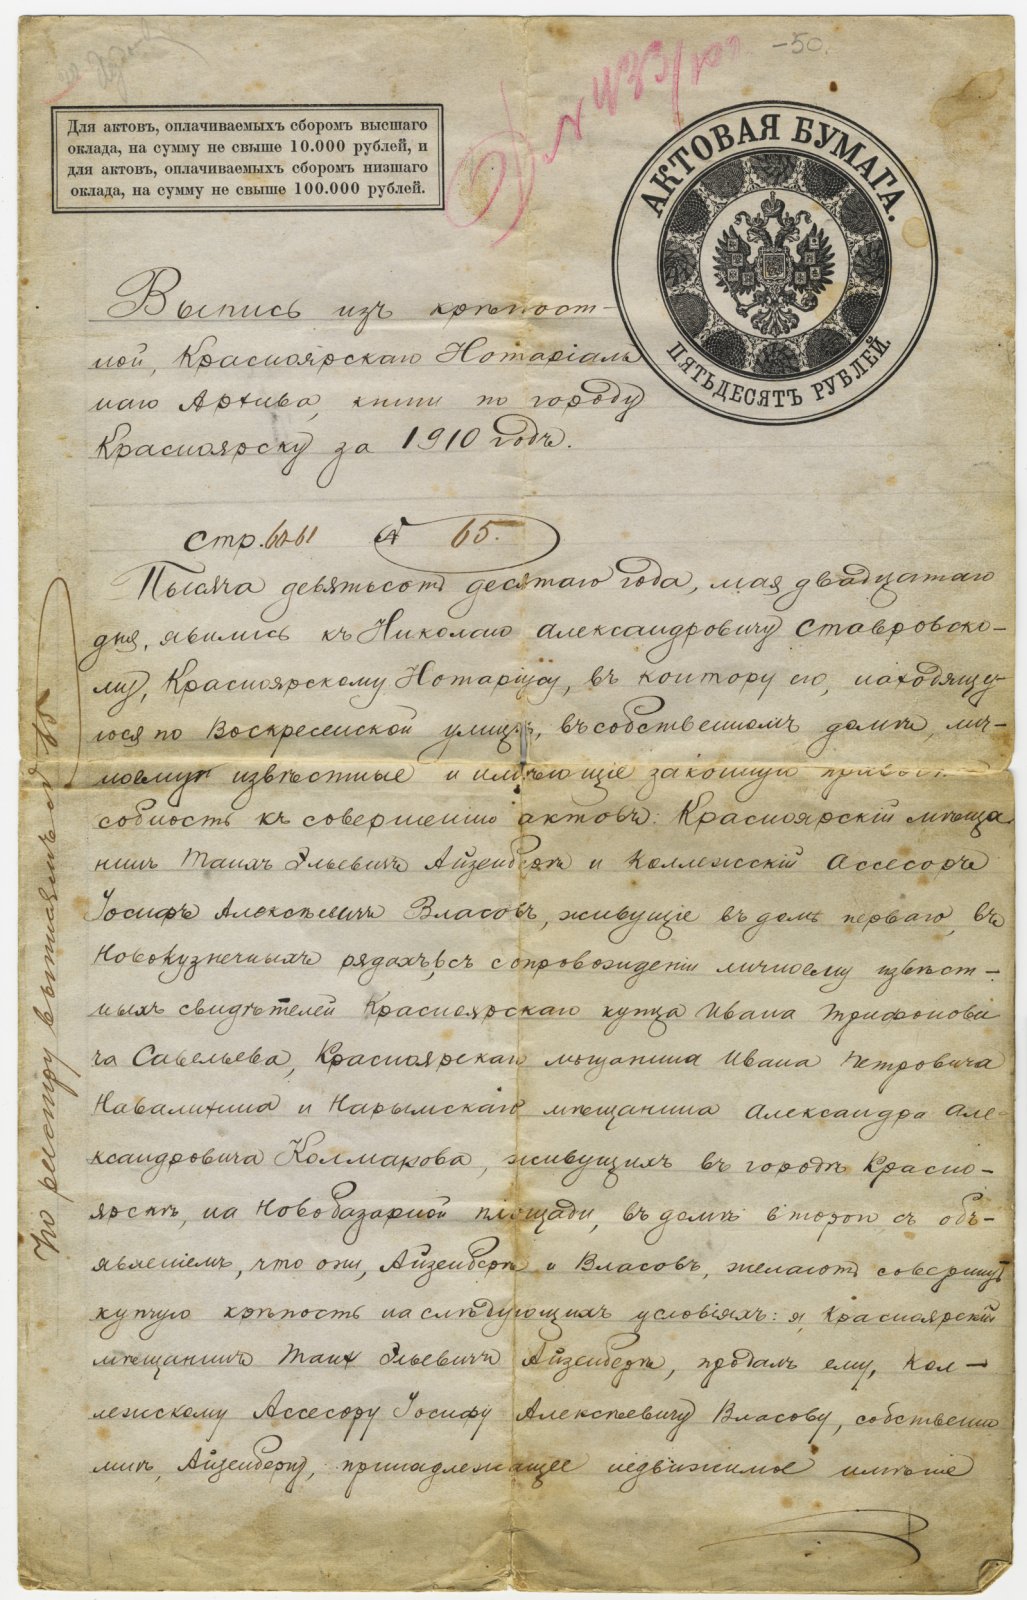 -50.
Для актовъ, оплачиваемыхъ сборомъ высшаго
оклада, на сумму не свыше 10.000 рублей, и
для актовъ, оплачиваемыхъ сборомъ низшаго
оклада, на сумму не свыше 100.000 рублей.
АКТОВАЯ БУМАГА.
ПЯТЬДЕСЯТЪ РУБЛЕЙ.
Выпись изъ крѣпост-
ной, Красноярскаго Нотаріаль
наго Архива, книги по городу
Красноярску за 1910 годъ.
Стр. 60-61 № 65.
Тысяча девятьсотъ десятаго года, мая двадцатаго
дня, явились къ Николаю Александровичу Ставровско-
му, Красноярскому Нотаріусу, въ контору его, находящу-
юся по Воскресенской улицѣ, въ собственномъ домѣ, лич-
но ему извѣстные и имѣющіе законную
собность къ совершенію актовъ: Красноярскій мѣща
нинъ Танхъ Эльевичъ Айзенбергъ и Коллежскій Ассесоръ
Іосифъ Алексѣевичъ Власовъ, живущіе въ домѣ перваго, въ
Новокузнечныхъ рядахъ, съ сопровожденіи лично ему извѣст-
ныхъ свидѣтелей Красноярскаго купца Ивана Трифонови
ча Савельева, Красноярскаго мѣщанина Ивана Петровича
Навалихина и Нарымскаго мѣщанина Александра Але-
ксандровича Колмакова, живущихъ въ городѣ Красно-
ярскѣ, на Новобазарной площади, въ домѣ второго съ объ-
явленіемъ, что они, Айзенбергъ и Власовъ, желаютъ совершить
купчую крѣпость на слѣдующихъ условіяхъ: я, Красноярскій
мѣщанинъ Танх Эльевичъ Айзенбергъ, продалъ ему, Кол-
лежскому Ассесору Іосифу Алексѣевичу Власову, собственно
мнѣ, Айзенбергу, принадлежащее недвижимое имѣніе
По реестру нотаріуса №